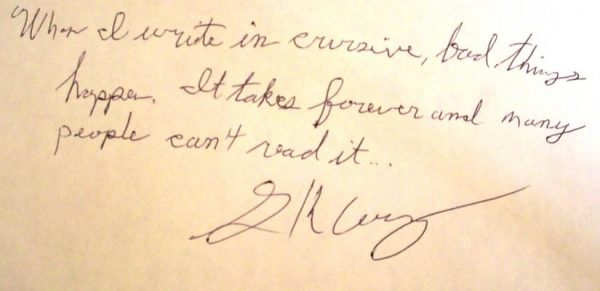 "When I write in cursive, bad things
happen. It takes forever and many
people can't read it...